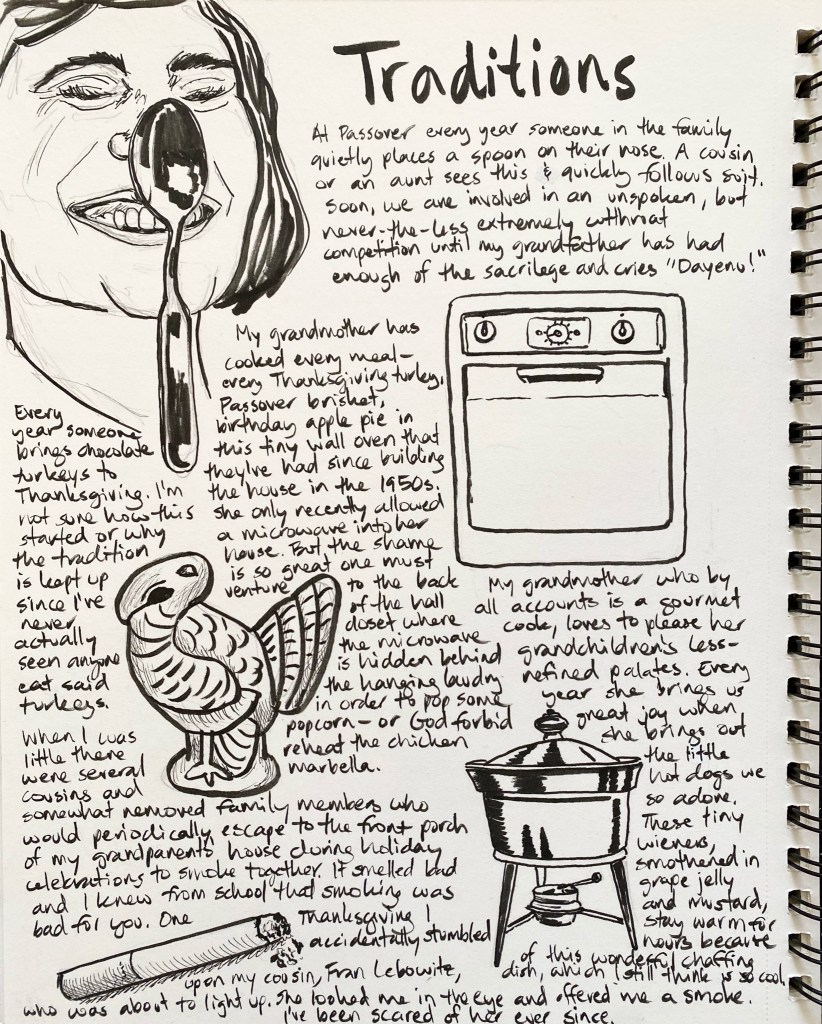 Traditions
At Passover every year someone in the family
quietly places a spoon on their nose. A cousin
or an aunt sees this & quickly follows suit.
Soon, we are involved in an unspoken, but
never-the-less extremely cutthroat
competition until my grandfather has had
enough of the sacrilege and cries "Dayenu!"
My grandmother has
cooked every meal-
every Thanksgiving turkey,
Passover brisket,
birthday apple pie in
this tiny wall oven that
they've had since building
the house in the 1950s.
She only recently allowed
a microwave into her
house. But the shame
is so great one must
venture to the back
of the hall
closet where
the microwave
is hidden behind
the hanging laundry
in order to pop some
popcorn - or God forbid
reheat the chicken
marbella.
Every
year someone
brings chocolate
turkeys to
Thanksgiving. I'm
not sure how this
started or why
the tradition
is kept up
since I've
never
actually
seen anyone
eat said
turkeys.
My grandmother who by
all accounts is a gourmet
cook, loves to please her
grandchildren's less-
refined palates. Every
year she brings us
great joy when
she brings out
the little
hot dogs we
so adore.
These tiny
wieners,
smothered in
grape jelly
and mustard,
stay warm for
hours because
of this wonderful chaffing
dish, which I still think is so cool.
When I was
little there
were several
cousins and
somewhat removed family members who
would periodically escape to the front porch
of my grandparents house during holiday
celebrations to smoke together. It smelled bad
and I knew from school that smoking was
bad for you. One
Thanksgiving I
accidentally stumbled
upon my cousin, Fran Lebowitz,
who was about to light up. She looked me in the eye and offered me a smoke.
I've been scared of her ever since.